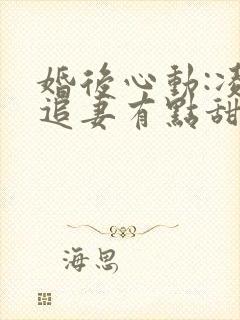 婚後心動:凌
追妻有點甜
海思